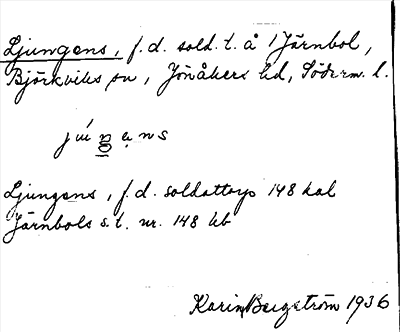 Ljungens, f.d. sold.t. å 1 Järnbol,
Björkviks sn, Jönåkers hd, Söderm. l.
Ljungens, f.d. soldattorp 148 kal
Järnbols s.t. nr. 148 kb
Karin Bergström 1936